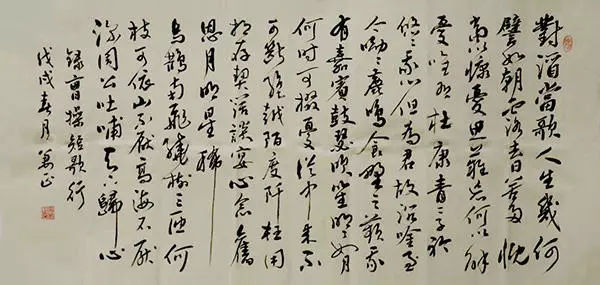 對酒當歌人生幾何
譬如朝露去日苦多慨
當以慷憂思難忘何以解
憂唯有杜康青青子衿
悠悠我心但為君故沉吟至
今呦呦鹿鳴食野之苹我
有嘉賓鼓瑟吹笙明明如月
何時可掇憂從中來不
可斷絕越陌度阡枉用
相存契闊談宴心念舊
恩月明星稀
烏鵲南飛繞樹三匝何
枝可依山不厭高海不厭
深周公吐哺天下歸心
錄曹操短歌行
戊戌春月萬正